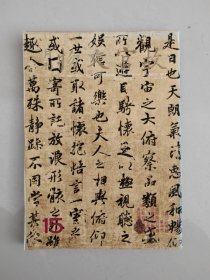 是日也天朗氣清惠風和暢
觀宇宙之大俯察品類之盛
所以遊目騁懷足以極視聽之
娛信可樂也夫人之相與俯仰
一世或取諸懷抱悟言一室之
或因寄所託放浪形骸之外
趣舍萬殊靜躁不同當其欣
15